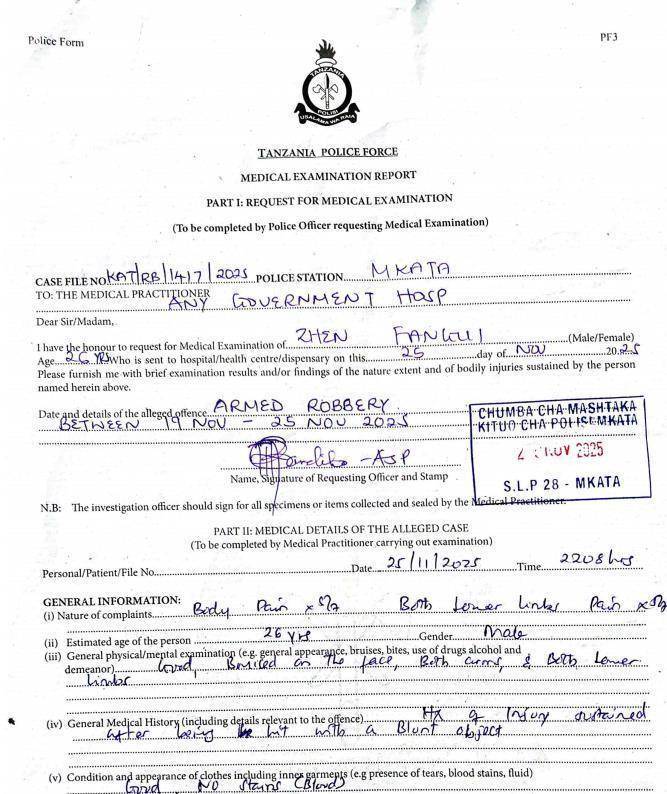 Police Form
PF3
TANZANIA
POLISI
USALAMA WA RAIA
TANZANIA POLICE FORCE
MEDICAL EXAMINATION REPORT
PART I: REQUEST FOR MEDICAL EXAMINATION
(To be completed by Police Officer requesting Medical Examination)
CASE FILE NO. KAT/RB/1417/2025 POLICE STATION MKATA
TO: THE MEDICAL PRACTITIONER
ANY GOVERNMENT HOSP
Dear Sir/Madam,
I have the honour to request for Medical Examination of ZHEN FANGUI (Male/Female)
Age 26 YRS Who is sent to hospital/health centre/dispensary on this 25 day of NOV 2025
Please furnish me with brief examination results and/or findings of the nature extent and of bodily injuries sustained by the person
named herein above.
Date and details of the alleged offence. ARMED ROBBERY
BETWEEN 19 NOV - 25 NOV 2025
CHUMBA CHA MASHTAKA
KITUO CHA POLISI MKATA
NOV 2025
S.L.P 28 - MKATA
- ASP
Name, Signature of Requesting Officer and Stamp
N.B: The investigation officer should sign for all specimens or items collected and sealed by the Medical Practitioner.
PART II: MEDICAL DETAILS OF THE ALLEGED CASE
(To be completed by Medical Practitioner carrying out examination)
Personal/Patient/File No. Date 25/11/2025 Time 2208 hrs
GENERAL INFORMATION:
(i) Nature of complaints Body Pain x 5/7 Both Lower limbs Pain x 5/7
(ii) Estimated age of the person 26 yrs Gender Male
(iii) General physical/mental examination (e.g. general appearance, bruises, bites, use of drugs alcohol and
demeanor) Good, Bruised on the face, Both arms, & Both Lower
limbs
(iv) General Medical History (including details relevant to the offence) Hx of Injury sustained
after being hit with a Blunt object
(v) Condition and appearance of clothes including inner garments (e.g presence of tears, blood stains, fluid)
Good, NO stains (Blood)